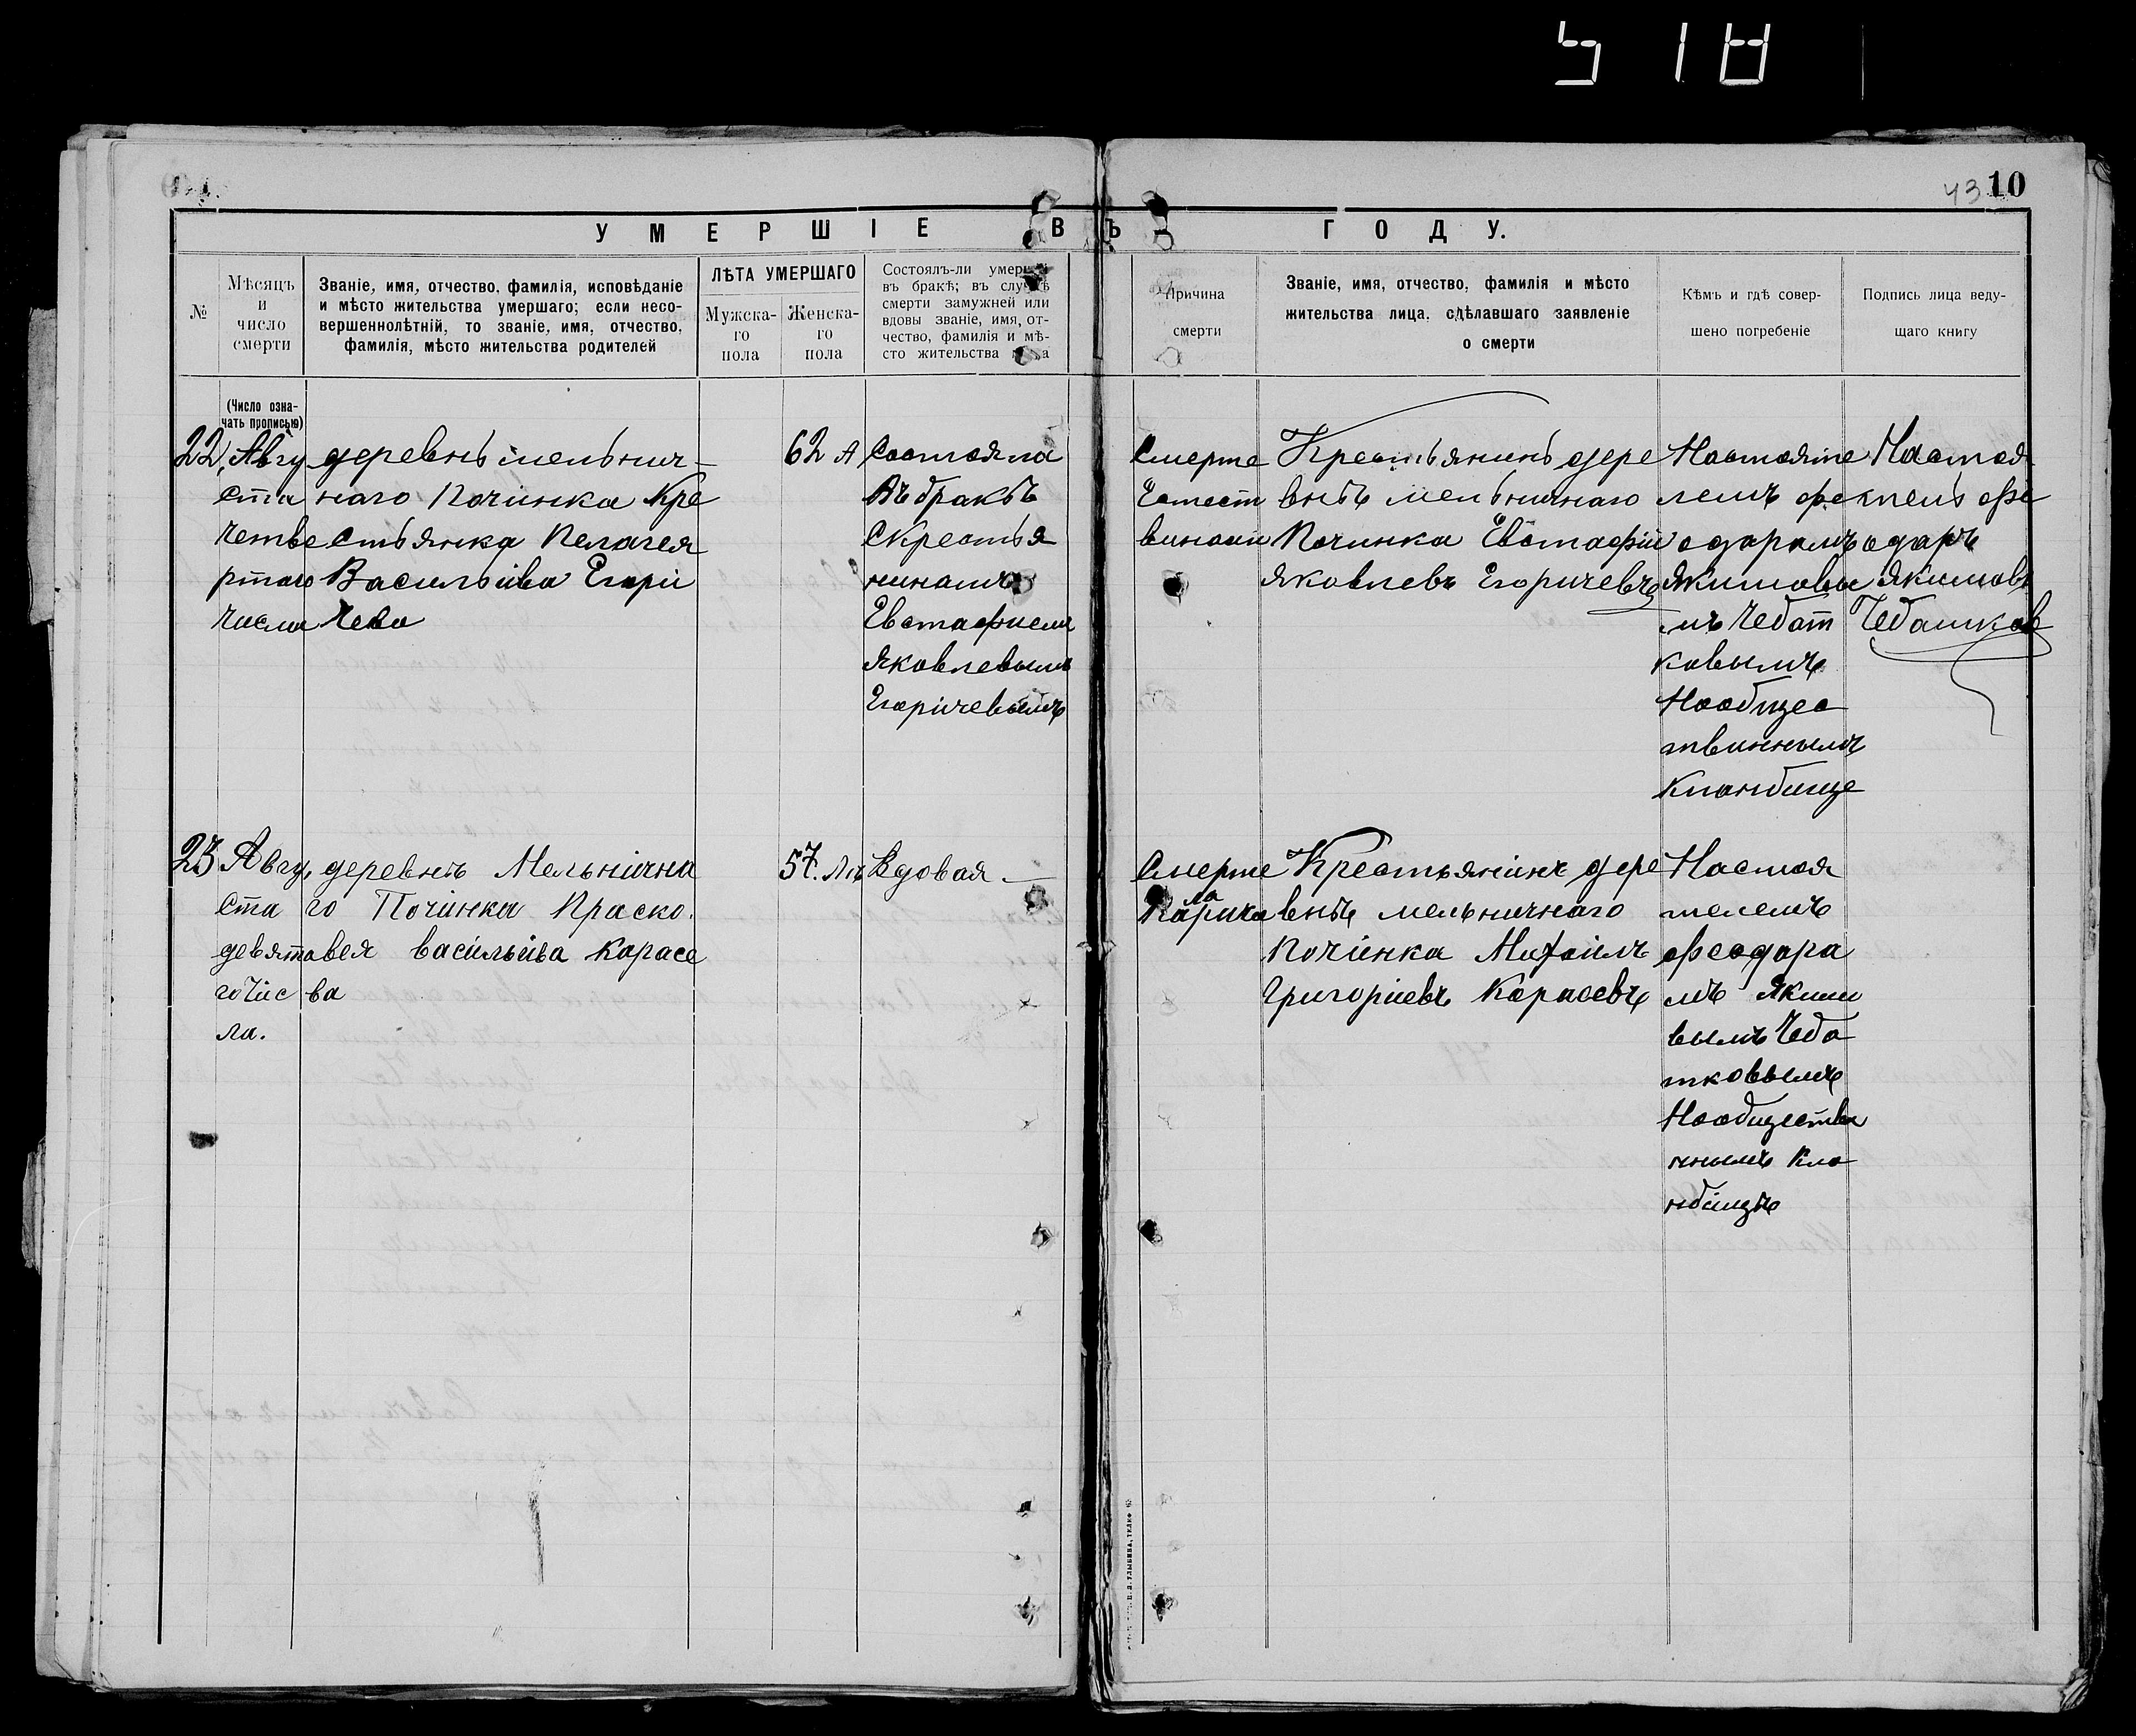 43 10
УМЕРШІЕ ВЪ ГОДУ.
№
Мѣсяцъ
и
число
смерти
Званіе, имя, отчество, фамилія, исповѣданіе
и мѣсто жительства умершаго; если несо-
вершеннолѣтній, то званіе, имя, отчество,
фамилія, мѣсто жительства родителей
ЛѢТА УМЕРШАГО
Мужска-
го
пола
Женска-
го
пола
Состоялъ-ли умершій
въ бракѣ; въ случаѣ
смерти замужней или
вдовы званіе, имя, от-
чество, фамилія и мѣ-
сто жительства мужа
Причина
смерти
Званіе, имя, отчество, фамилія и мѣсто
жительства лица, сдѣлавшаго заявленіе
о смерти
Кѣмъ и гдѣ совер-
шено погребеніе
Подпись лица веду-
щаго книгу
(Число озна-
чать прописью)
22,
Авгу
ста
четве
ртаго
числа
деревнѣ мельнич-
наго Починка Кре
стьянка Пелагея
Василѣива Егорі
чева
62 л
Состояла
Въ бракѣ
Скрестья
ниномъ
Евстафиемъ
Яковлевымъ
Егорічевымъ
Смерте
Естест
виноий
Крестьянинъ дере
внѣ мельничнаго
Починка Евстафій
Яковлевъ Егоричевъ
Настояте
лемъ фе
одорамъ
Якимовы
мъ Чебот
ковымъ
Наобщес
твиннымъ
Кланбище
Настоя
тель фе
одаръ
Якимовъ
Чебатков
23
Авгу,
ста
девято
гочис
ла.
деревнѣ Мельнична
го Починка Праско.
вея васильива Карасе
ва
57. лѣ
Вдовая —
Смерте
Паралича
Крестьянинъ дере
внѣ мельничнаго
Починка Михаилъ
Григориевъ Карасевъ
Настоя
телемъ
феодора
мъ Якимо
вымъ Чебо
тковымъ
Наобществе
ннымъ Кла
нбищѣ